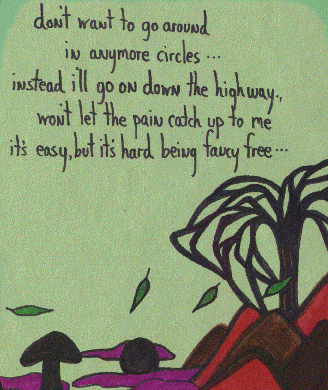 don't want to go around
in anymore circles ...
instead i'll go on down the highway.,
won't let the pain catch up to me
it's easy, but it's hard being fancy free ...